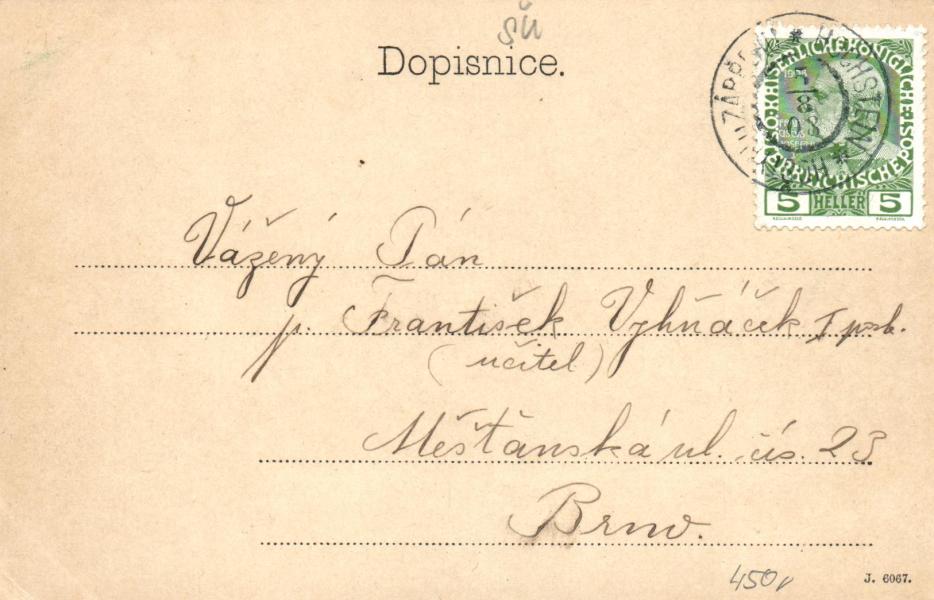 šú
Dopisnice.
* HOCHSTEIN *
1908
KAISERLICHE KÖNIGLICHE
ÖSTERREICHISCHE POST
5 HELLER 5
Vážený Pán
p. František Vyhňáček
(učitel)
Měšťánská ul. čís. 23
Brno.
450,
J. 6067.